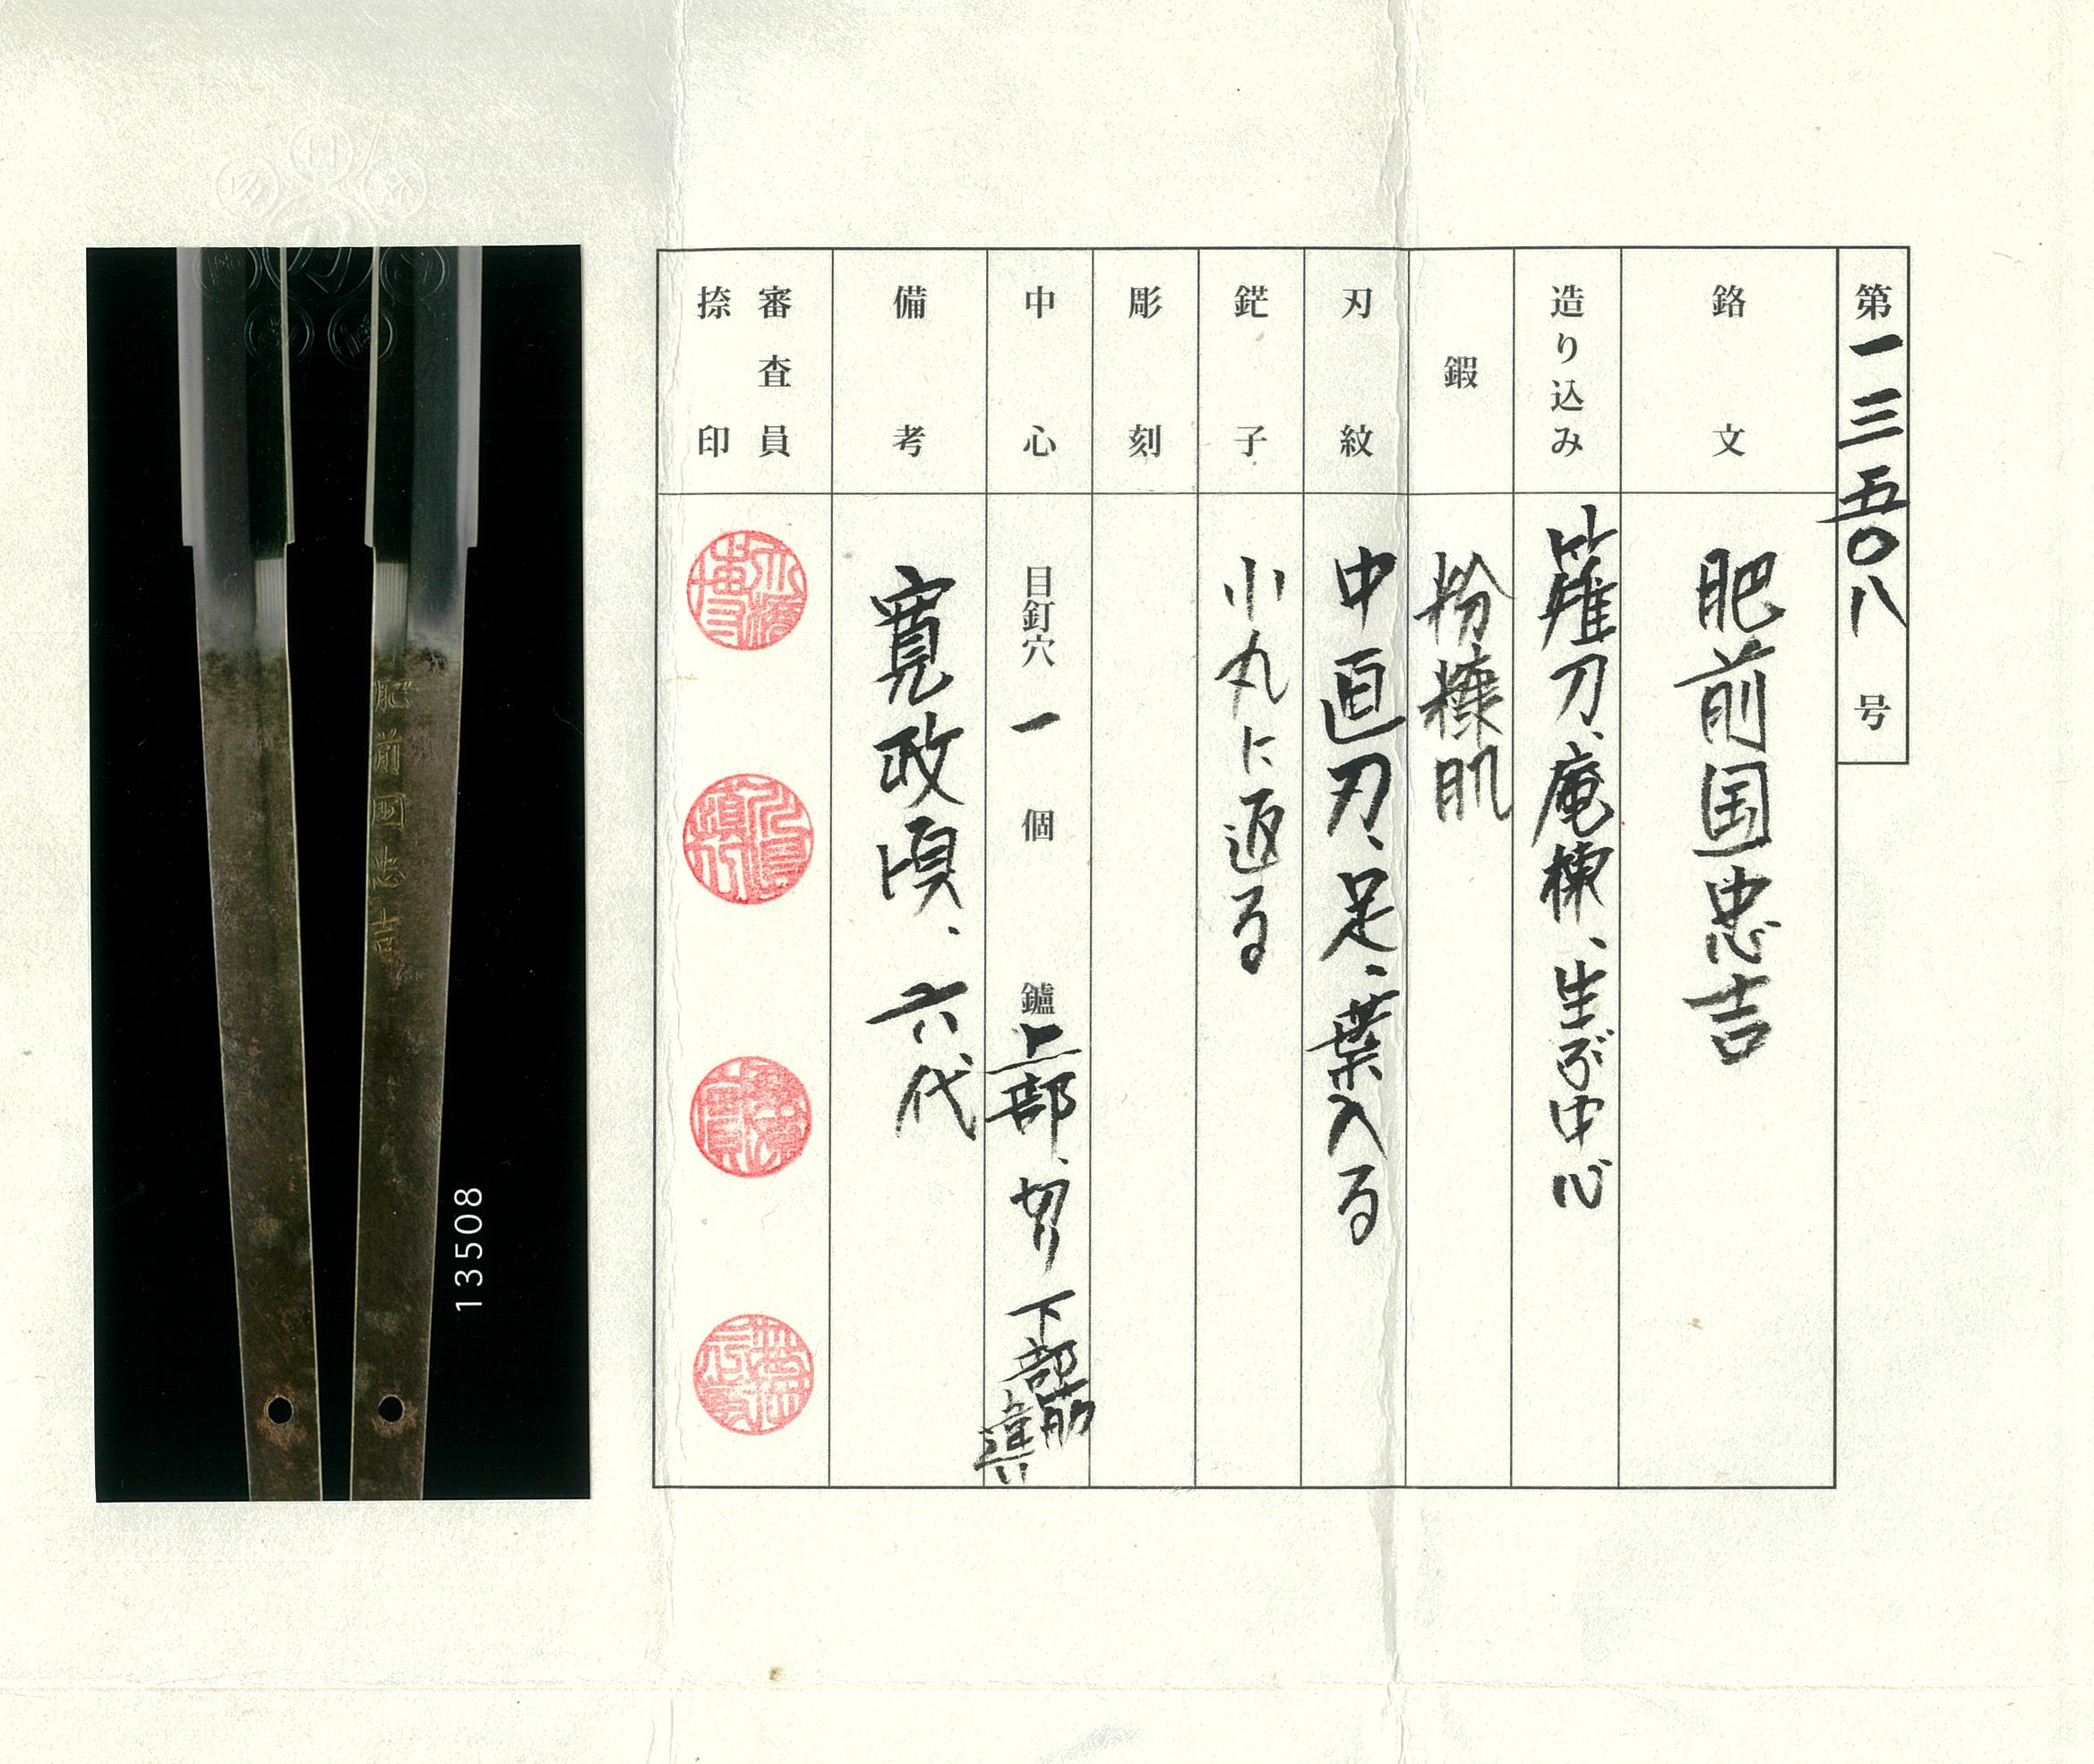 第一三五〇八号
銘文 肥前国忠吉
造り込み 薙刀、庵棟、生ぶ中心
鍜 粉糠肌
刃紋 中直刃、足、葉入る
鋩子 小丸に返る
彫刻
中心 目釘穴 一 個 鑢 上部、切り 下部筋違い
備考 寛政頃、六代
審査員
捺印
肥前国忠吉
13508